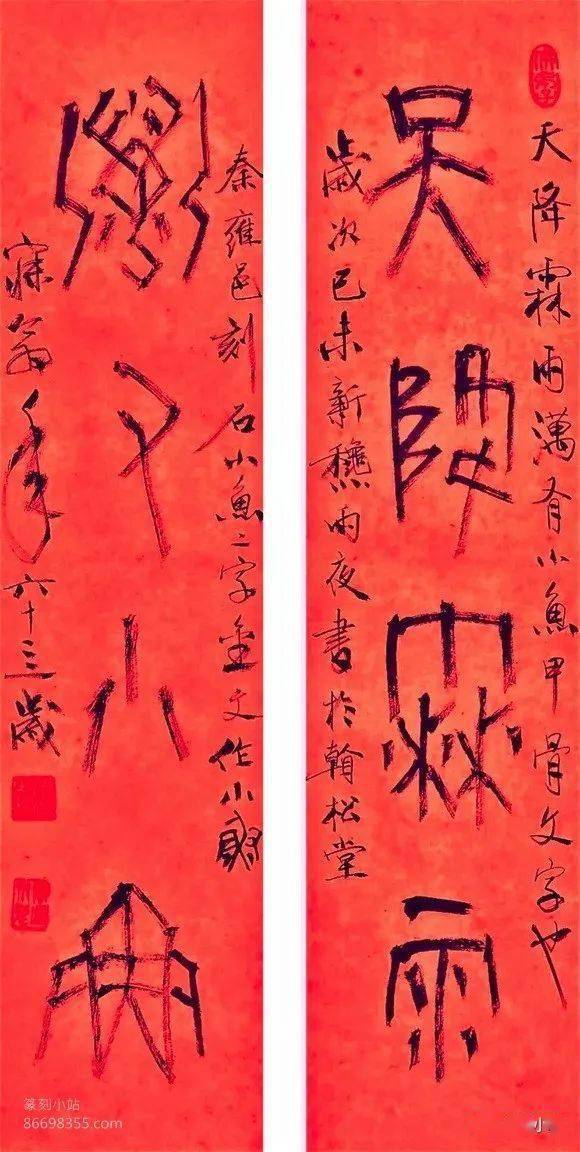 天降霖雨澫有小魚甲骨文字也
天降霖雨
歲次己未新穐雨夜書於翰松堂
秦雍邑刻石小魚二字金文作小
澫又小魚
寐叟年六十三歲
篆刻小站
86698355.com
小